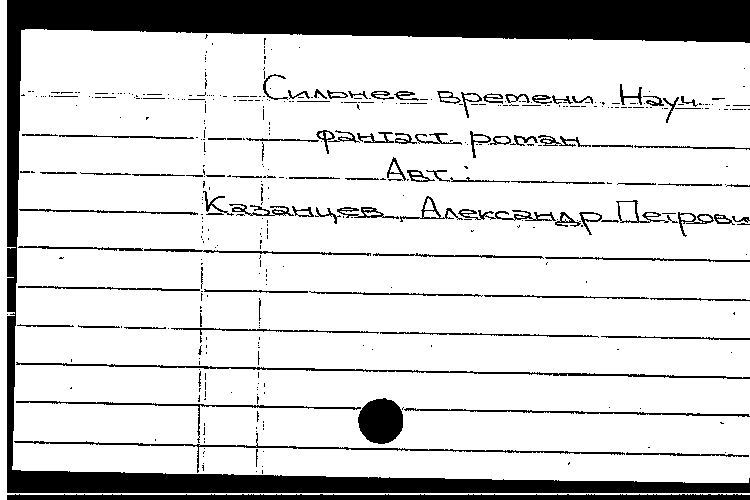 Сильнее времени. Науч.-
фантаст. роман
Авт.:
Казанцев, Александр Петрови